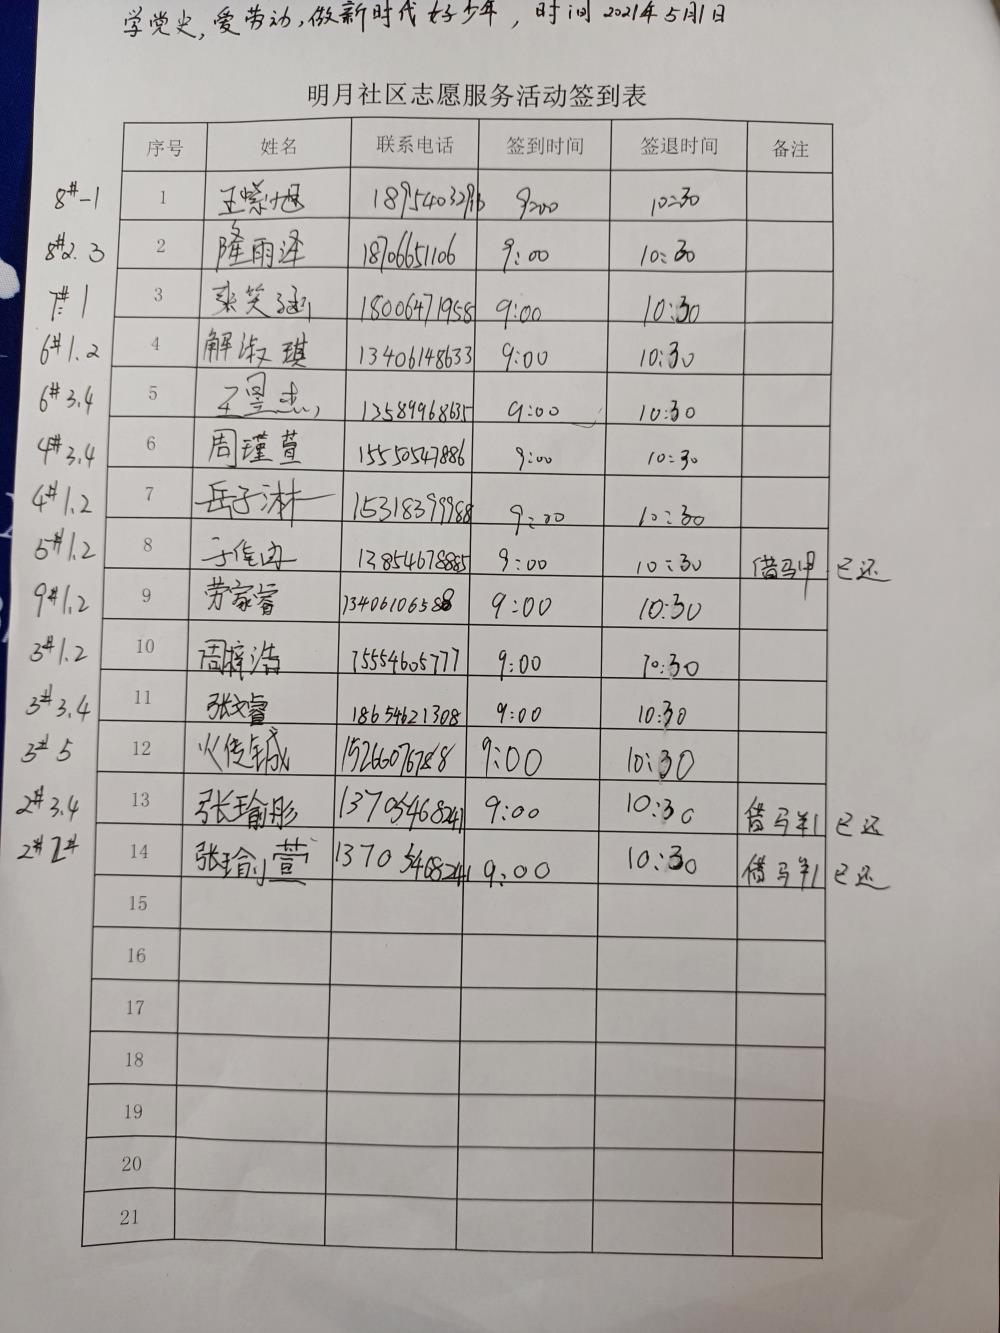 学党史,爱劳动,做新时代好少年,时间2021年5月1日
明月社区志愿服务活动签到表
序号 姓名 联系电话 签到时间 签退时间 备注
8#-1 1 9:00 10:30
8#2.3 2 隆雨泽 18706651106 9:00 10:30
7#1 3 18006471958 9:00 10:30
6#1.2 4 解淑琪 13406148633 9:00 10:30
6#3.4 5 13589968635 9:00 10:30
4#3.4 6 周瑾萱 15550547886 9:00 10:30
4#1.2 7 岳子淋 15318399988 9:00 10:30
5#1.2 8 13854678885 9:00 10:30 借马甲 已还
9#1.2 9 劳家睿 13406106588 9:00 10:30
3#1.2 10 周梓浩 15554605777 9:00 10:30
3#3.4 11 张文睿 18654621308 9:00 10:30
3#5 12 9:00 10:30
2#3.4 13 张瑜彤 13705468241 9:00 10:30 借马 已还
2# 14 张瑜萱 13705468241 9:00 10:30 借马 已还
15
16
17
18
19
20
21